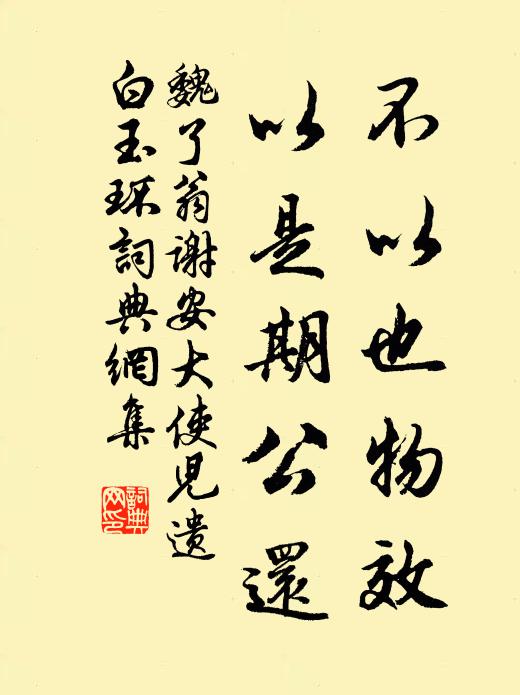 不以也物效
以是期公還
魏了翁謝安大使見遺
白玉環詞典網集
詞典
网印